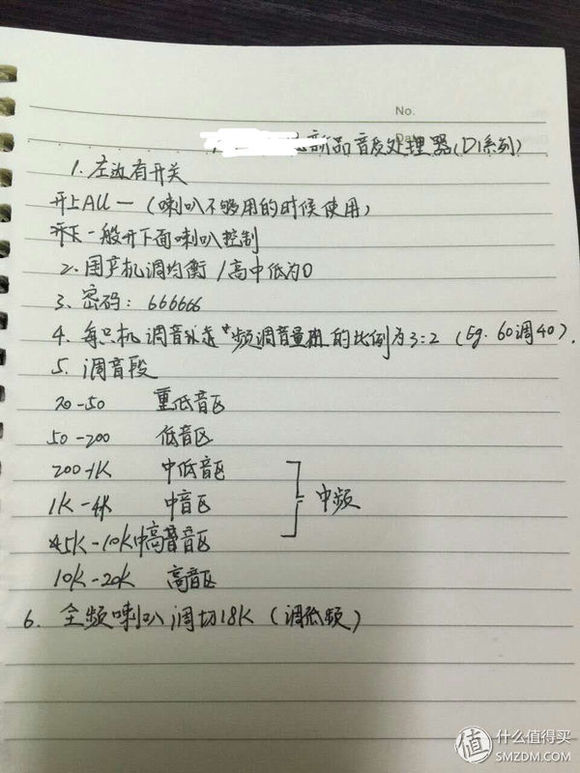 No.
新品音质处理器(D1系列)
1. 左边有开关
开上All一(喇叭不够用的时候使用)
开下一般开下面喇叭控制
2. 国产机调均衡/高中低为0
3. 密码: 666666
4. 每只机调音 频调音量 的比例为3:2 (Eg. 60调40).
5. 调音段
20-50 重低音区
50-200 低音区
200-1K 中低音区
1K-4K 中音区
中频
45K-10K中高音区
10K-20K 高音区
6. 全频喇叭调切18K (调低频)
值 什么值得买
SMZDM.COM